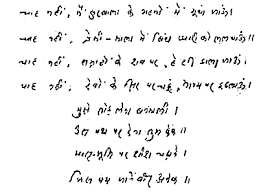 चाह नहीं, मैं सुरबाला के गहनों में गूँथा जाऊँ।
चाह नहीं, प्रेमी-माला में बिंध प्यारी को ललचाऊँ।
चाह नहीं, सम्राटों के शव पर, हे हरि डाला जाऊँ।
चाह नहीं, देवों के सिर पर चढ़ूँ, भाग्य पर इठलाऊँ।
मुझे तोड़ लेना वनमाली।
उस पथ पर देना तुम फेंक॥
मातृ-भूमि पर शीश चढ़ाने।
जिस पथ जावें वीर अनेक॥